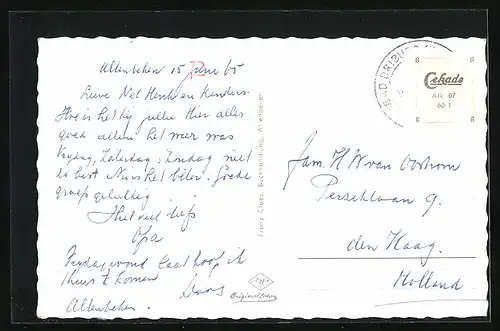 Altenbeken 15 Juni 65
Lieve Nel Henk en kinders.
Hoe is het bij jullie Hier alles
goed alleen het weer was
Vrijdag, Zaterdag, Zondag niet
zo best Nu is het beter. Goede
Heel veel liefs
Opa
Vrijdagavond laat hoop ik
thuis te komen
Altenbeken.
Franz Claes, Buchhandlung, Altenbeken
Originalfoto
BAD DRIBURG
Cekade
Afk 07
60 1
B
B
B
B
Fam. H W van Oostrom
Perziklaan 9.
den Haag.
Holland